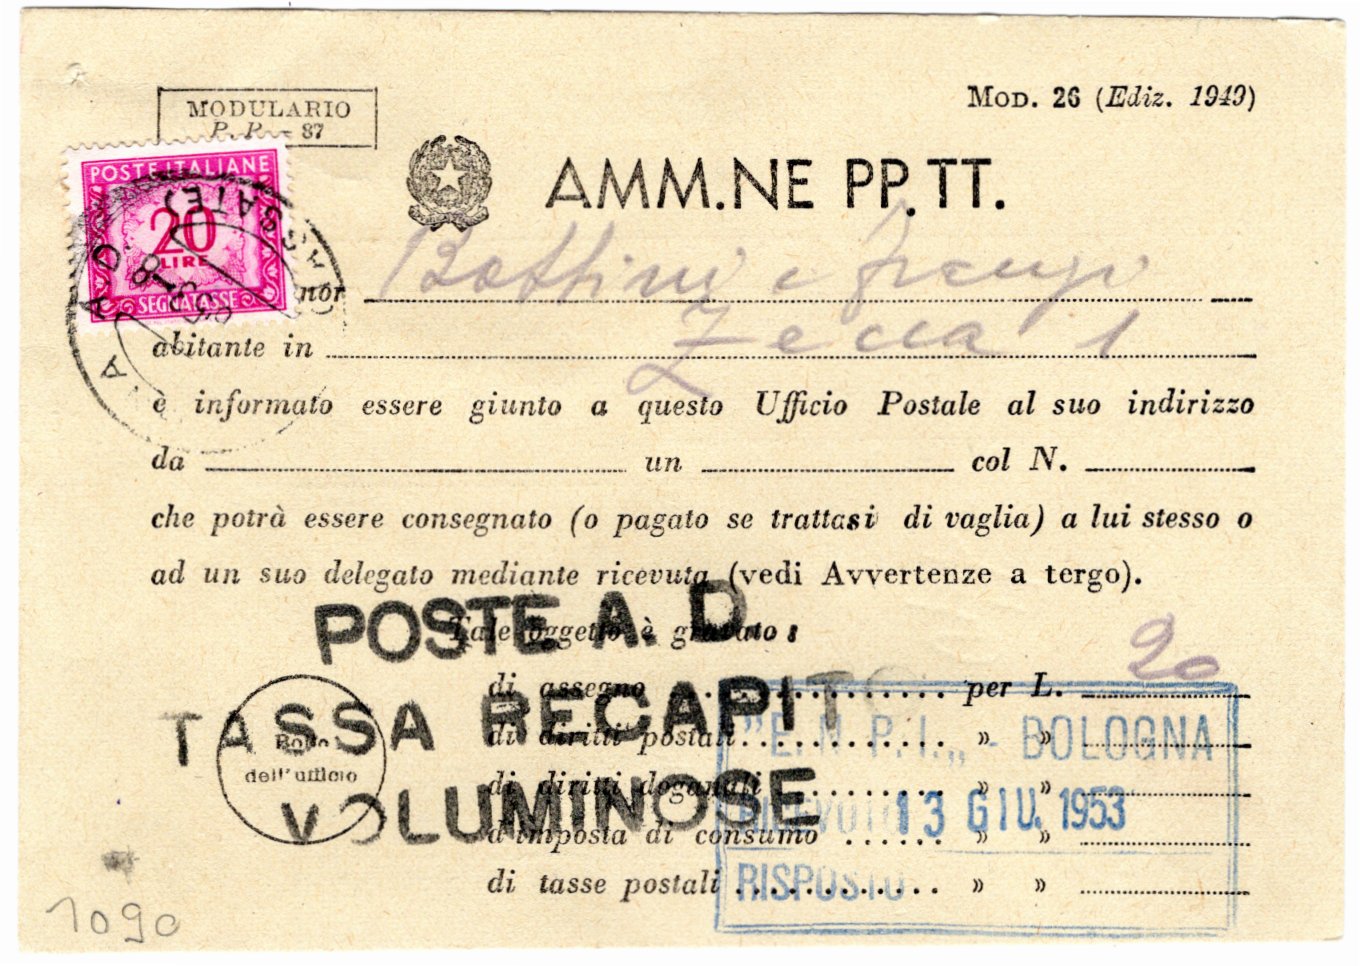 MOD. 26 (Ediz. 1949)
MODULARIO
P. P. - 87
POSTE ITALIANE
20
LIRE
SEGNATASSE
AMM.NE PP.TT.
nor Bottini e
abitante in Zecca 1
è informato essere giunto a questo Ufficio Postale al suo indirizzo
da un col N.
che potrà essere consegnato (o pagato se trattasi di vaglia) a lui stesso o
ad un suo delegato mediante ricevuta (vedi Avvertenze a tergo).
POSTE A. D.
Tale oggetto è gravato :
di assegno . . . . . . . . . . . . . per L. 20
TASSA RECAPITO
"E.N.P.I.„ - BOLOGNA
di diritti postali . . . . . . . . . . . » »
Bollo
dell'ufficio
di diritti doganali . . . . . . . . . . » »
VOLUMINOSE
RICEVUTO 13 GIU. 1953
d'imposta di consumo . . . . . . » »
RISPOSTO
di tasse postali . . . . . . . . . . . . » »
1090